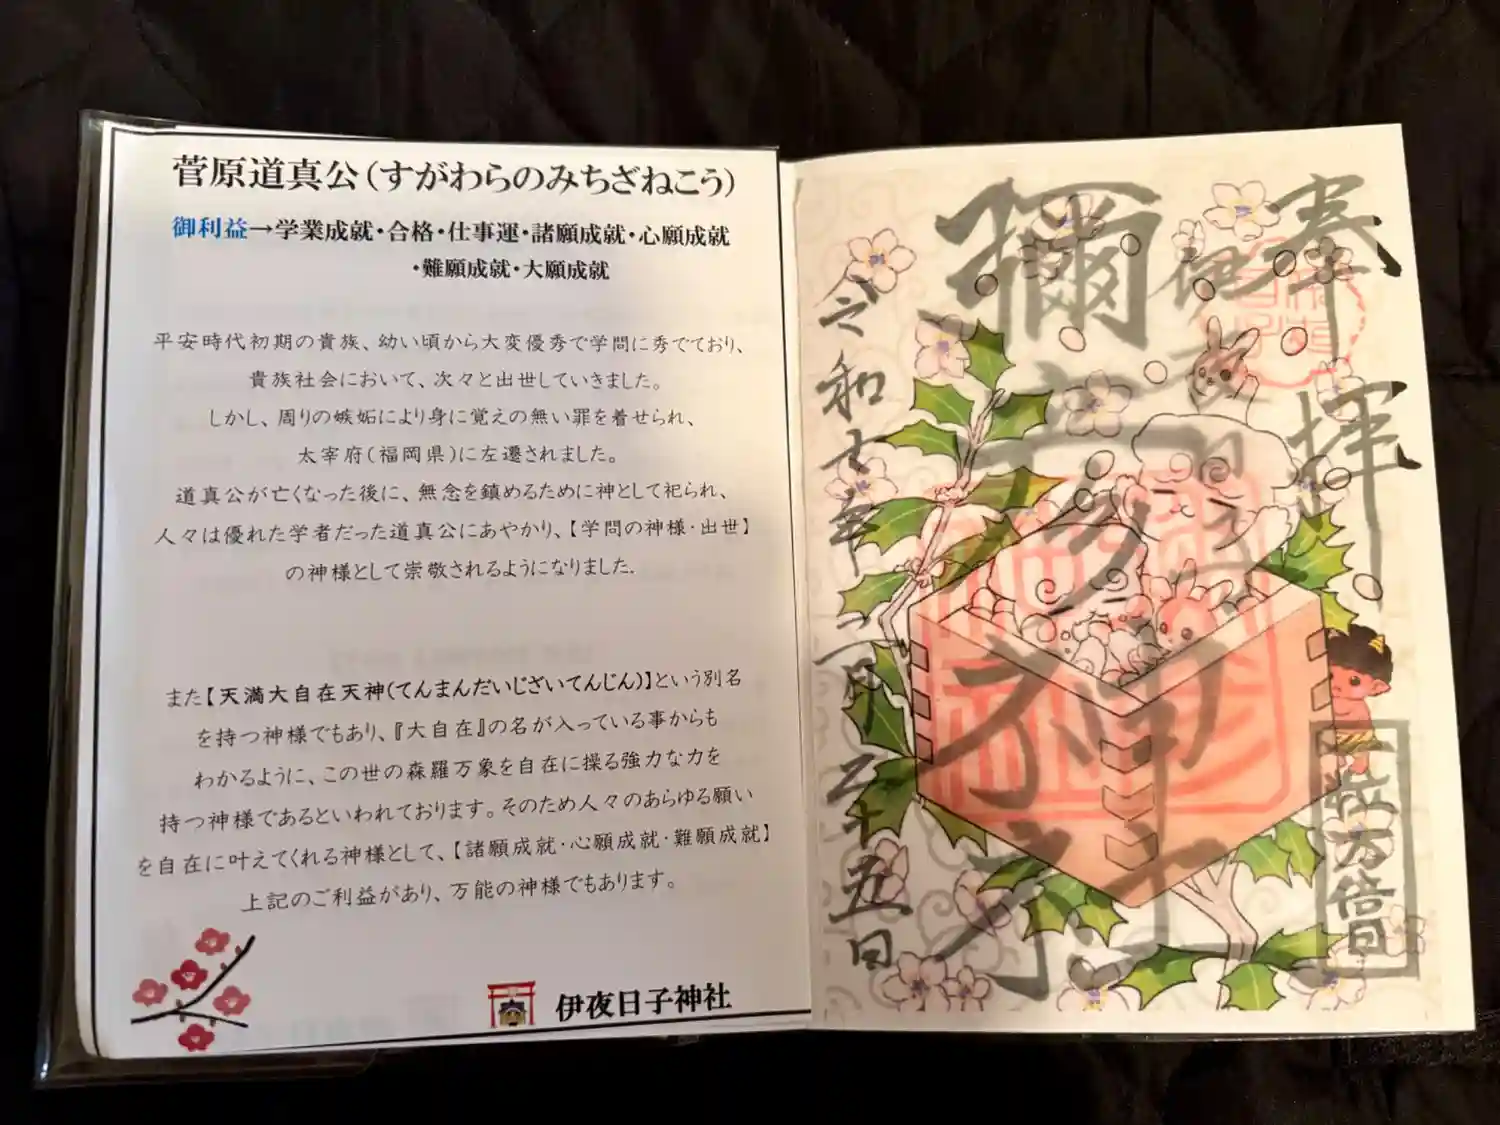 菅原道真公(すがわらのみちざねこう)
御利益→学業成就・合格・仕事運・諸願成就・心願成就
・難願成就・大願成就
平安時代初期の貴族、幼い頃から大変優秀で学問に秀でており、
貴族社会において、次々と出世していきました。
しかし、周りの嫉妬により身に覚えの無い罪を着せられ、
太宰府(福岡県)に左遷されました。
道真公が亡くなった後に、無念を鎮めるために神として祀られ、
人々は優れた学者だった道真公にあやかり、【学問の神様・出世】
の神様として崇敬されるようになりました.
また【天満大自在天神(てんまんだいじざいてんじん)】という別名
を持つ神様でもあり、『大自在』の名が入っている事からも
わかるように、この世の森羅万象を自在に操る強力な力を
持つ神様であるといわれております。そのため人々のあらゆる願い
を自在に叶えてくれる神様として、【諸願成就・心願成就・難願成就】
上記のご利益があり、万能の神様でもあります。
伊夜日子神社
奉拝
一粒万倍日
彌彦神社